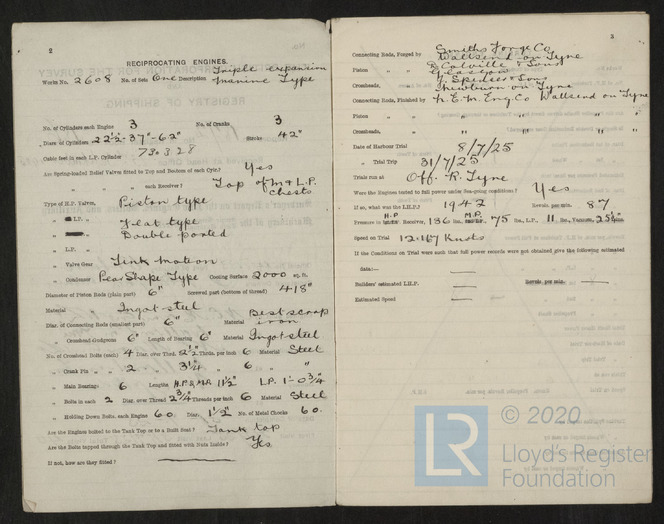 2
RECIPROCATING ENGINES.
Works No. 2608 No. of Sets One Description Triple expansion
Marine Type
No. of Cylinders each Engine 3 No. of Cranks 3
Diars. of Cylinders 22½-37"-62" Stroke 42"
Cubic feet in each L.P. Cylinder
Are Spring-loaded Relief Valves fitted to Top and Bottom of each Cylr.? Yes
" " " each Receiver? Top of M & L.P. Chests
Type of H.P. Valves, Piston type
" I.P. " Flat type
" Double ported
" L.P. "
" Valve Gear Link motion
" Condenser Pear Shape Type Cooling Surface 2000 sq. ft.
Diameter of Piston Rods (plain part) 6" Screwed part (bottom of thread) 4.18"
Material Ingot steel
Diar. of Connecting Rods (smallest part) 6" Material Best scrap iron
" Crosshead Gudgeons 6" Length of Bearing 6" Material Ingot steel
No. of Crosshead Bolts (each) 4 Diar. over Thrd. 2½" Thrds. per inch 6 Material Steel
" Crank Pin " " 2 " 3¼" " 6 " "
" Main Bearings 6 Lengths H.P. & M.P. 11½" L.P. 1'-0¾"
" Bolts in each 2 Diar. over Thread 2¾" Threads per inch 6 Material Steel
" Holding Down Bolts, each Engine 60 Diar. 1½" No. of Metal Chocks 60
Are the Engines bolted to the Tank Top or to a Built Seat? Tank top
Are the Bolts tapped through the Tank Top and fitted with Nuts Inside? Yes
If not, how are they fitted?
3
Connecting Rods, Forged by Smiths Forge Co
Wallsend on Tyne
Piston " D Colville & Sons
Glasgow
Crossheads, J. Spencer & Sons
Newburn on Tyne
Connecting Rods, Finished by N.E.M. Eng. Co Wallsend on Tyne
Piston " " " "
Crossheads, " " " "
Date of Harbour Trial 8/7/25
" Trial Trip 31/7/25
Trials run at Off. R. Tyne
Were the Engines tested to full power under Sea-going conditions? Yes
If so, what was the I.H.P.? 1942 Revols. per min. 87
Pressure in H.P. Receiver, 136 lbs., M.P. 75 lbs., L.P. 11 lbs., Vacuum, ins.
Speed on Trial 12.117 Knots
If the Conditions on Trial were such that full power records were not obtained give the following estimated
data:—
Builders' estimated I.H.P. — Revols. per min. —
Estimated Speed —
LR
© 2020
Lloyd's Register
Foundation